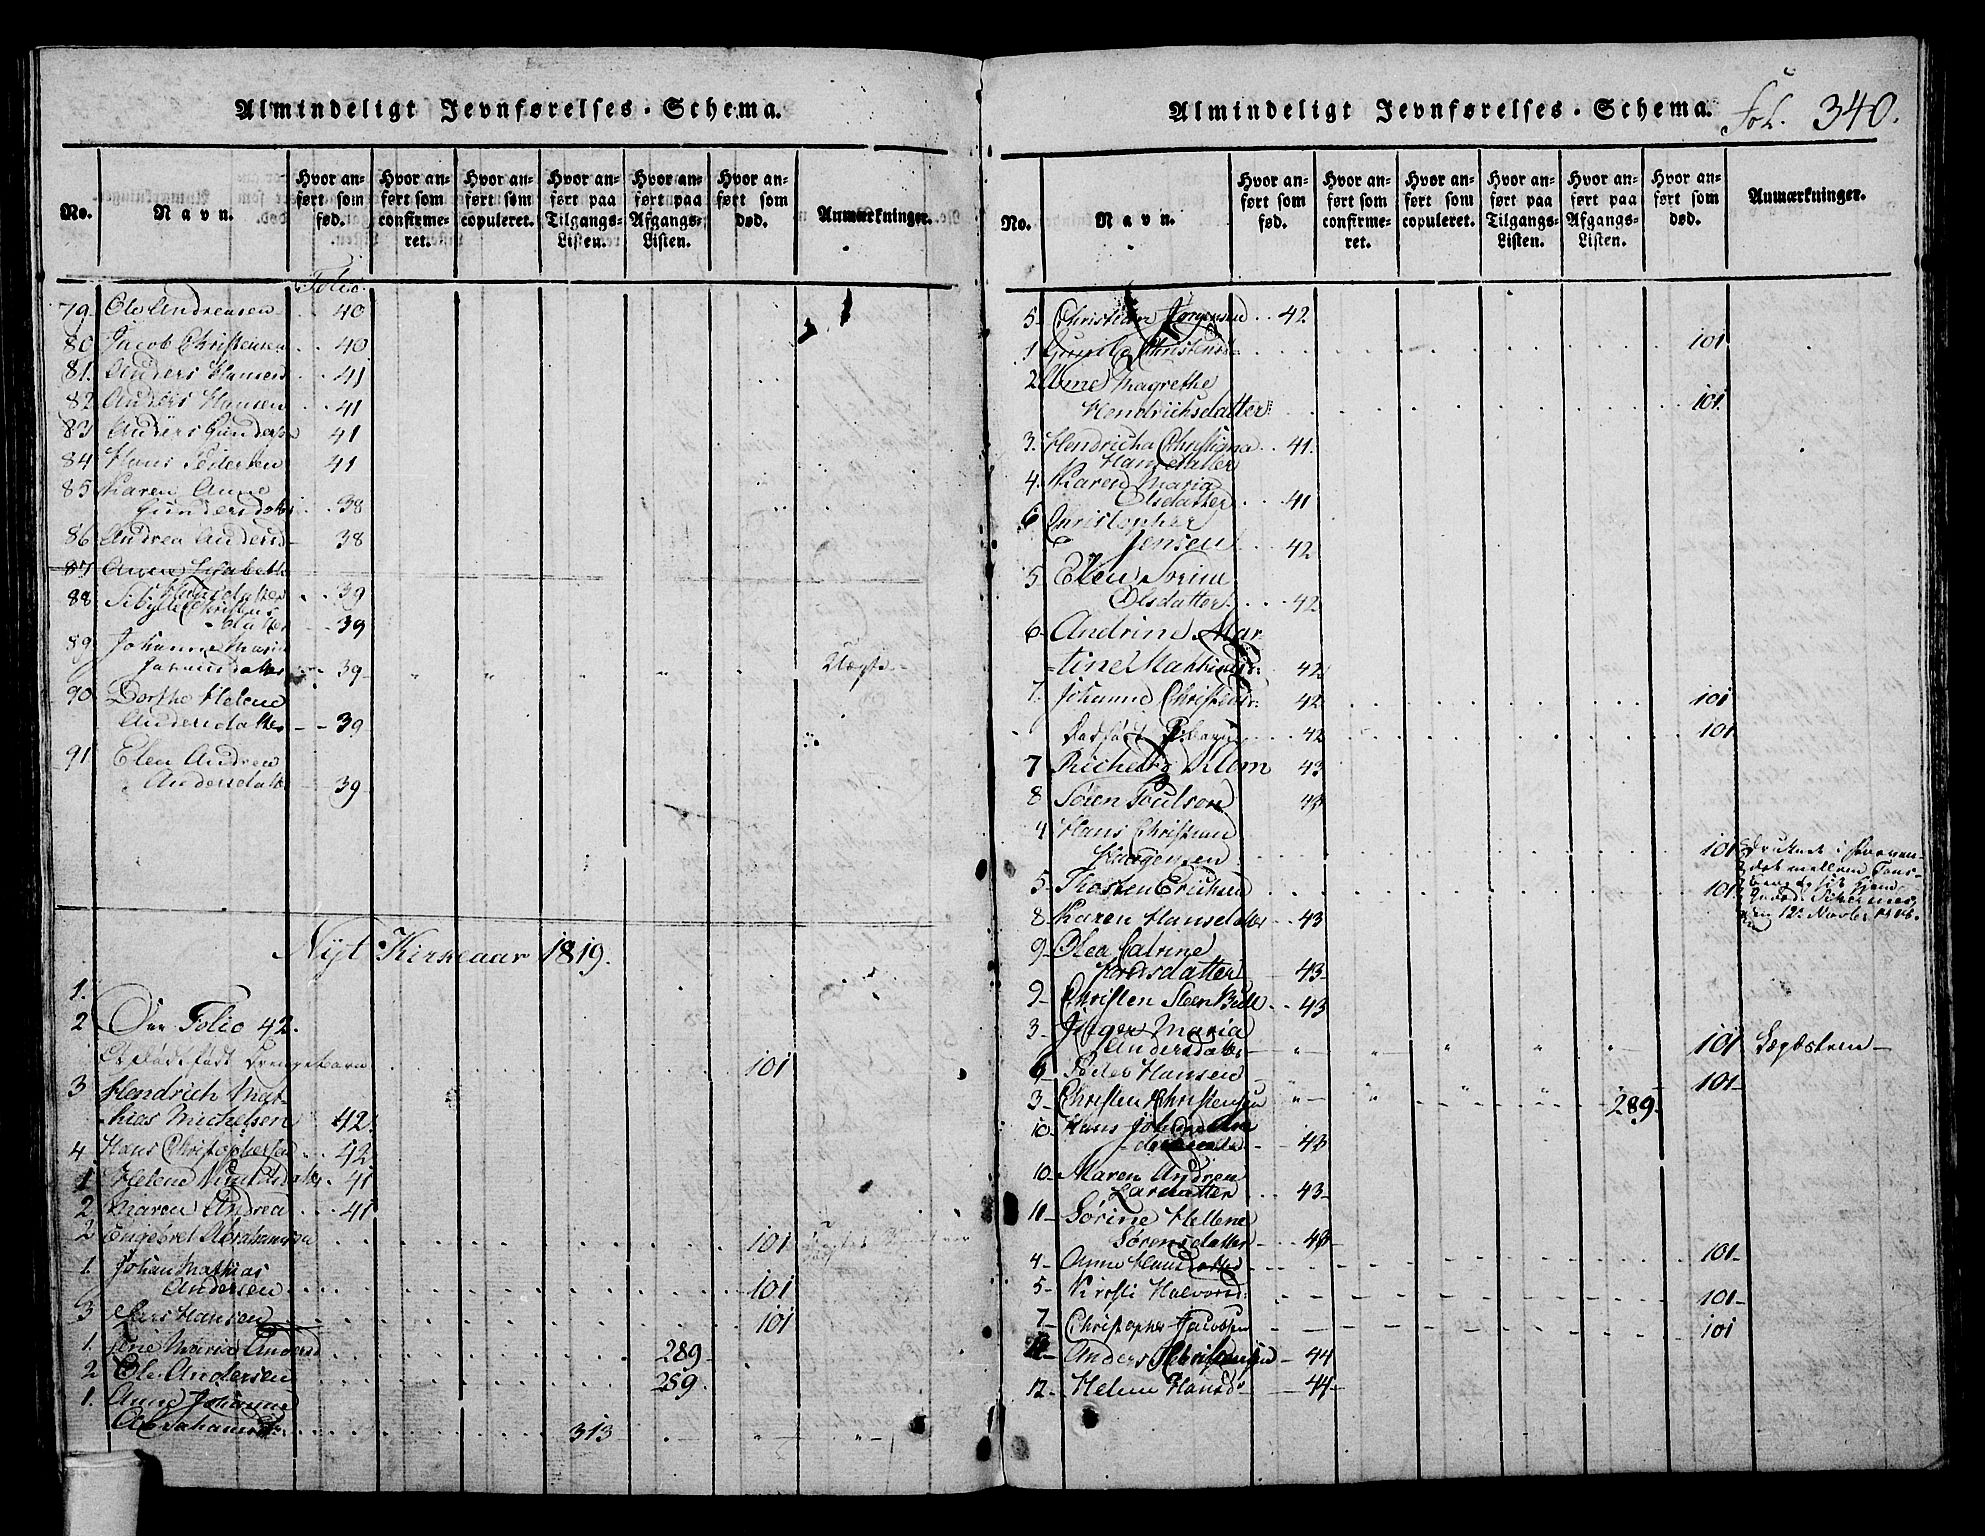 Almindeligt Jevnførelses-Schema.
No.
Navn.
Hvor anført som fød.
Hvor anført som confirmeret.
Hvor anført som copuleret.
Hvor anført paa Tilgangs-Listen.
Hvor anført paa Afgangs-Listen.
Hvor anført som død.
Anmærkninger.
Folio.
79. Ole Andreasen 40
80 Jacob Christensen 40
81. Anders Hansen 41
82 Anders Hansen 41
83 Anders Gunders 41
84 Hans Pedersen 41
85 Karen Anne
Gundersdatter 38
86 Andrea Andersd 38
87 Anne Lisabeth
Hansdatter 39
88 Sibylle Christens
datter 39
89 Johanne Maria
39
90 Dorthe Helene
Andersdatter 39
91 Elen Andrea
Andersdatter 39
Nyt Kirkeaar 1819.
1.
2 Folio 42.
Et Dødfødt Drengebarn 101
3 Hendrich Mat-
hias Michelsen 42
4. Hans Christophersen 42
1 Helene 41
2 Maren Andrea 41
2 Engebret Abrahamsen 101
1. Johan Mathias
Andersen 101
3 Lars Hansen 101
1. Maria Andersd 289
2 Ole Andersen 289.
1. Anne Johanne
Abrahamsd. 313
Almindeligt Jevnførelses-Schema.
Fol. 340.
No.
Navn.
Hvor anført som fød.
Hvor anført som confirmeret.
Hvor anført som copuleret.
Hvor anført paa Tilgangs-Listen.
Hvor anført paa Afgangs-Listen.
Hvor anført som død.
Anmærkninger.
5 Christian Jørgensen 42
1 Christensd. 101
2 Anne Magrethe
Hendrichsdatter 101
3. Hendricha Christiana
Hansdatter 41.
4. Karen Maria
Olsdatter 41
6 Christopher
Jensen 42
5 Elen Sorine
Olsdatter 42
6 Andrine Mar-
tine Mathiesd. 42
7. Johanne Christensd. 42 101
Dødfødt 42 101
7 Richard Klem 43
8 Søren Poulsen 43
4 Hans Christian
Jørgensen 101
5 Thosten Erichsen 101
8 Karen Hansdatter 43
9 Olea Catrine
43
9 Christen Steen Bull 43
3 Inger Maria
Andersdatter 101
Peder Hansen 101
3 Christen Christensen 289
10 Hans 43
10 Maren Andrea
Larsdatter 43
11 Sørine Hellene
Sørensdatter 43
4 Anne Hansdatter 101
5 Kirsti Halvorsd. 101
7 Christopher Jacobsen 101
Anders Christensen 44
12 Helene Hansd 44